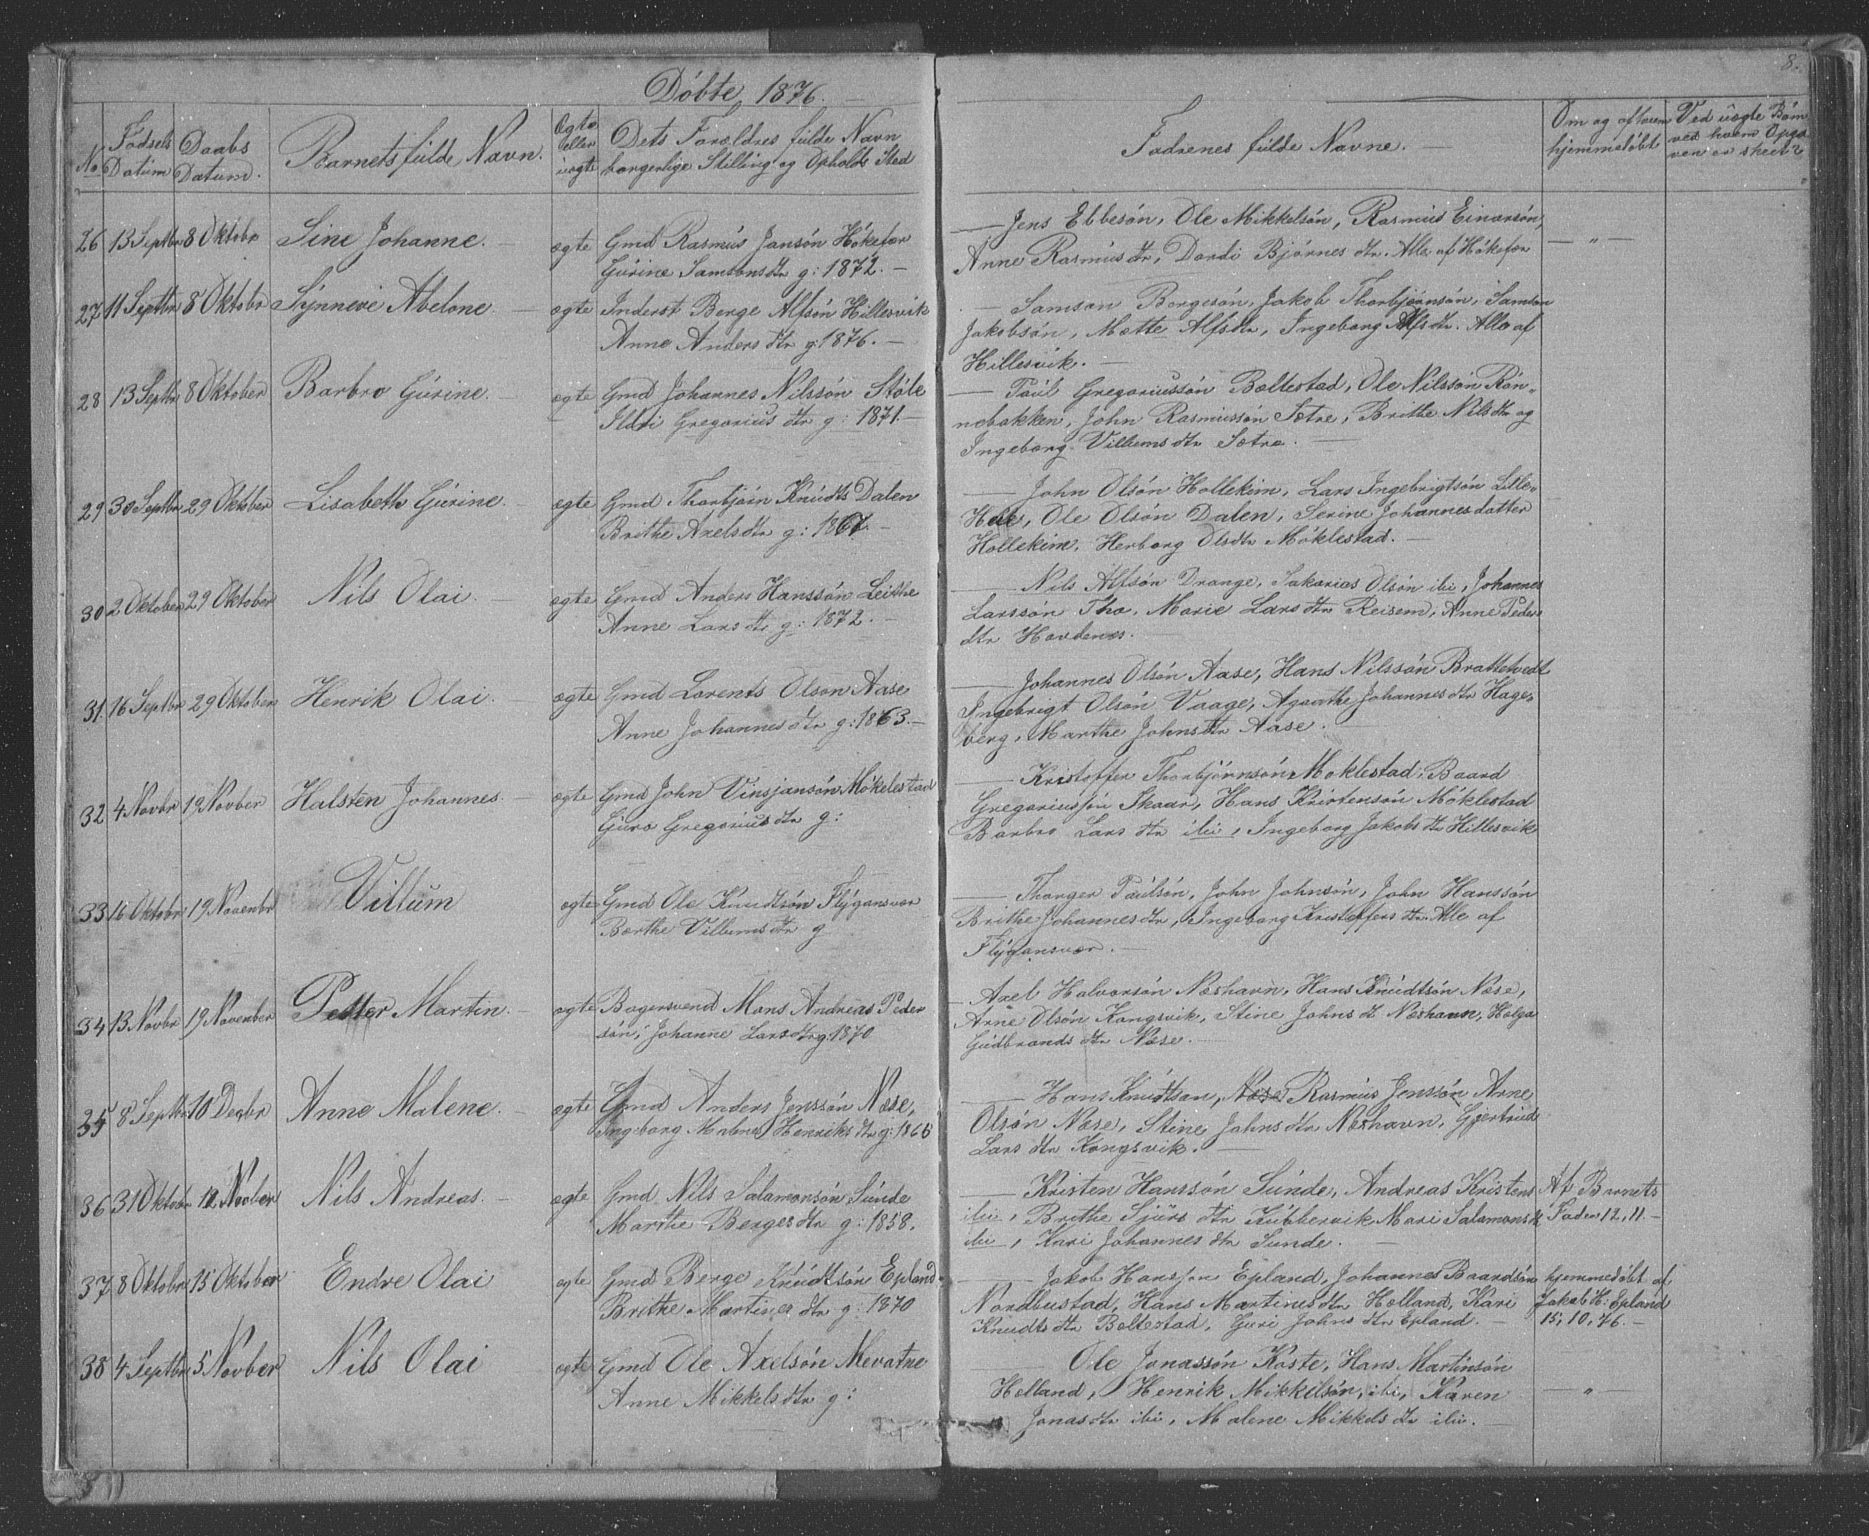 Döbte 1876.
8.
No
Fødsels Datum
Daabs Datum.
Barnets fulde Navn.
Ægte eller uægte
Dets Forældres fulde Navn borgerlige Stilling og Opholds Sted
Fadrenes fulde Navne.
Om og af hvem hjemmedöbt
Ved uægte Börn
26 13 Septbr 8 Oktobr Sine Johanne. ægte Gmd Rasmus Jansön Hökefær
Gurine Samsons dtr g: 1872.
Jens Ebbesön, Ole Mikkelsön, Rasmus Einarsön,
Anne Rasmus dtr, Dordi Björnes dtr. Alle af Hökefær
— " —
27 11 Septbr 8 Oktobr Synneve Abelone ægte Inderst Berge Alfsön Hillesvik
Anne Anders dtr g: 1876.
Samson Borgesön, Jakob Thorbjörnsön, Samson
Jakobsön, Mætte Alfsdtr, Ingeborg Alfsdtr. Alle af
Hillesvik.
28 13 Septbr 8 Oktober Barbro Gurine. ægte Gmd Johannes Nilssön Stöle
Ildri Gregorius dtr g: 1871.
Paul Gregoriussön Bæltestad, Ole Nilsson Rön-
nebakken, John Rasmussön Sætre, Brithe Nilsdtr og
Ingeborg Villums dtr Sætre.
29 30 Septbr 29 Oktober Lisabeth Gurine. ægte Gmd Thorbjörn Knudts Dalen
Brithe Axelsdtr g: 1867.
John Olsön Hollekim, Lars Ingebrigtsön Lille-
Ole Olsön Dalen, Serine Johannesdatter
Hollekim, Herborg Olsdtr Möklestad.
30 2 Oktober 29 Oktober Nils Olai. ægte Gmd Anders Hanssön Leithe
Anne Lars dtr g: 1872.
Nils Alfsön Drange, Sakarias Olsön ibi, Johannes
Larssön Tho, Marie Lars dtr Reisem, Anne Peder
dtr Havdenes.
31. 16 Septbr 29 Oktober Henrik Olai. ægte Gmd Lorents Olson Aase
Anne Johannesdtr g: 1863.
Johannes Olsön Aase, Hans Nilssön Brattetvedt
Ingebrigt Olsön Vaage, Agaathe Johannesdtr Hage-
berg, Marthe Johnsdtr Aase.
32 4 Novbr 19 Novber Halsten Johannes. ægte Gmd John Vinsjansön Mökelestad
Guro Gregorius dtr g:
Kristoffer Thorbjörnsön Moklestad, Baard
Gregoriussön Skaar, Hans Kristensön Möklestad
Barbro Lars dtr ibi, Ingeborg Jakobs dtr Hillesvik
33 16 Oktobr 19 Novenbr Villum ægte Gmd Ole Knudtsön Flygansvær
Barthe Villums dtr g
Thorger Paulsön, John Johnsön, John Hanssön
Brithe Johannes dtr, Ingeborg Kristoffers dtr Alle af
Flygansvær.
34 13 Novbr 19 Novenber Petter Martin. ægte Bagersvend Mons Andreas Peder
sön, Johanne Larsdtr g: 1870
Axel Halvorsön Næshavn, Hans Knudtsön Næse,
Arne Olsön Kongsvik, Stine Johns dtr Næshavn, Helga
Gudbrands dtr Næse.
35 8 Septbr 10 Decbr Anne Malene. ægte Gmd Anders Jenssön Næse,
Ingeborg Malene Henriks dtr g: 1866
Hans Knudtson, Næse, Rasmus Jenssön Arne
Olsön Næse, Stine Johns dtr Næshavn, Gjertrud
Lars dtr Kongsvik.
36 31 Oktobr 12 Novber Nils Andreas. ægte Gmd. Nils Salamonsön Sunde
Marthe Berges dtr g: 1858.
Kristen Hanssön Sunde, Andreas Kristens
ibi, Brithe Sjurs dtr Kubbervik Mari Salamons dtr
ibi, Kari Johannes dtr Sunde.
Af Barnets
Fader 12, 11.
37 8 Oktobr 15 Oktober Endre Olai ægte Gmd Berge Knudtsön Epland
Brithe Martines dtr g: 1870
Jakob Hansson Epland, Johannes Baardsön
Nordbustad, Hans Martinus dtr Helland, Kari
Knudts dtr Beltestad, Guri Johns dtr Epland.
hjemmedöbt af
Jakob H. Epland
15, 10, 76.
38 4 Septbr 5 Novber Nils Olai ægte Gmd Ole Axelsön Mevatne
Anne Mikkels dtr g:
Ole Jonassön Köste, Hans Martinsön
Helland, Henrik Mikkelsön, ibi, Karen
Jonas dtr ibi, Malene Mikkels dtr ibi.
— " —